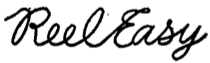 Reel Easy